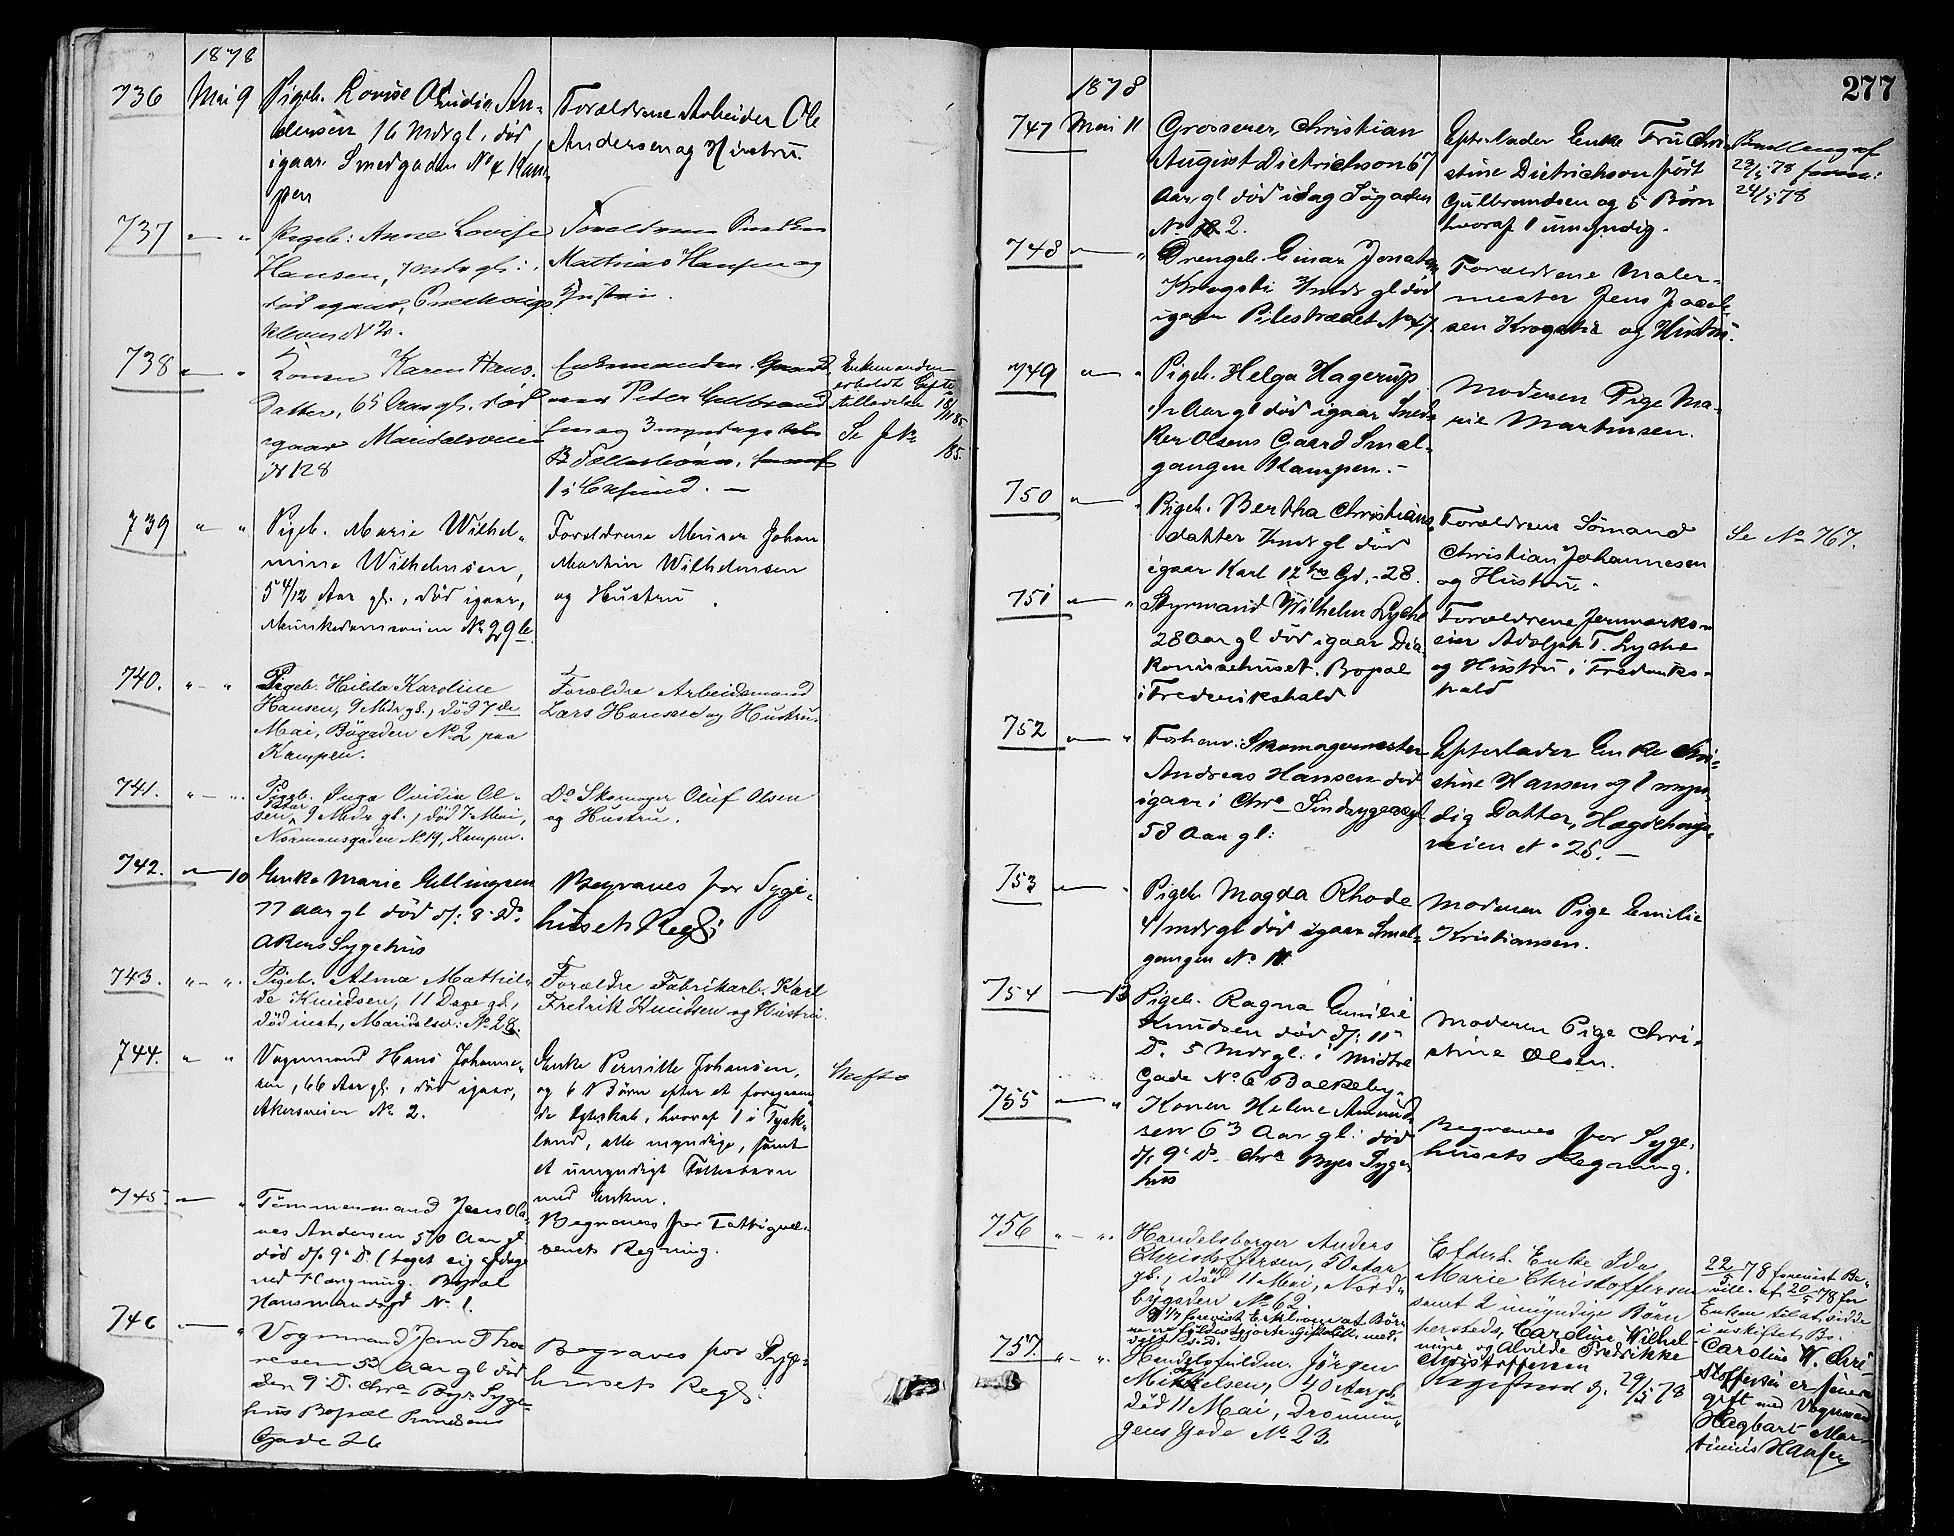 1878
736 Mai 9 Pigeb. Lovise Olvidia An-
dersen 16 Mdr gl. død
igaar Smedgaden No 4 Kam-
pen
Forældrene Arbeider Ole
Andersen og Hustru.
737 " Pigeb: Anne Lovise
Hansen, 7 mdr gl:
død igaar,
kleven N 2.
Forældrene
Mathias Hansen og
Hustru.
738 " Konen Karen Hans-
datter, 65 Aar gl. død
igaar Maridalsveien
N 128
Enkemanden Gaard-
Peder Gulbrand
sen og 3 myndige
Fællesbørn,
1 i Eksund.
Enkemanden
erholdt Skifte-
tilladelse
Se J No
85.
739 " " Pigeb. Marie Wilhel-
mine Wilhelmsen,
5 4/12 Aar gl., død igaar,
Munkedamsveien No 29 b.
Forældrene Murer Johan
Martin Wilhelmsen
og Hustru.
740. " - " Pigeb. Hilda Karoline
Hansen, 9 Mdr gl., død 7de
Mai, Bøgaden No 2 paa
Kampen.
Forældre Arbeidsmand
Lars Hansen og Hustru.
741. " - " Pigeb. Inga Ovidia Ol-
sen, 9 Mdr gl., død 7 Mai,
Normansgaden No 19, Kampen.
Do Skomager Oluf Olsen
og Hustru.
742. 10 Enke Marie Ellingsen
77 Aar gl død d: 9. Ds
Akers Sygehus
Begraves for Syge-
husets Regs:
743. " - " Pigeb. Alma Mathil-
de Knudsen, 11 Dage gl.,
død inat, Maridalsv: No 28.
Forældre Fabrikarb. Karl
Fredrik Knudsen og Hustru.
744. " " Vognmand Hans Johanne-
sen, 66 Aar gl., død igaar,
Akersveien No 2.
Enke Pernille Johansen,
og 6 Børn efter et foregaaen-
de Egteskab, hvoraf 1 i Tysk-
land, alle myndige, samt
et umyndigt Fællesbarn
med Enken.
Skifte
745. " Tømmermand Jens Ola-
ves Andersen 50 Aar gl
død d. 9. Ds (taget sig afdage
ved Hængning. Bopæl
Hausmandsgd No 1.
Begraves for Fattigvæ-
senets Regning.
746 " Vognmand Jan Tho-
resen 53 Aar gl død
den 9. D. Chra Byes Syge-
hus Bopæl
Gade 26
Begraves for Syge-
husets Regs:
277
1878
747 Mai 11 Grosserer Christian
August Dietrichson 67
Aar gl død idag Søgaden
No 2.
Efterlader Enke Fru Chri-
stine Dietrichson født
Gulbrandsen og 5 Børn
hvoraf 1 umyndig.
Bevilling af
23/5 78
24/5 78
748 " Drengeb. Einar Jonatan
Krogstie 7 mdr gl død
igaar Pilestrædet No 47.
Forældrene Maler-
mester Jens Jacob-
sen Krogstie og Hustru.
749 " " Pigeb. Helga Hagerup
1/2 Aar gl død igaar Sned-
ker Olsens Gaard Smal-
gangen Kampen.
Moderen Pige Ma-
rie Martinsen.
750 " " Pigeb. Bertha Christians-
datter 7 mdr gl død
igaar Karl 12tes Gd. 28.
Forældrene Sømand
Christian Johannesen
og Hustru.
Se No 767.
751 " " Styrmand Wilhelm Lyche
28 Aar gl død igaar Dia-
konissehuset. Bopæl
i Frederikshald
Forældrene Jernvarks-
eier Adolph T. Lyche
og Hustru i Frederiks-
hald
752 " " Forhenv: Skomagermester
Andreas Hansen død
igaar i Chra Sindsygeasyl
58 Aar gl:
Efterlader Enke Chri-
stine Hansen og 1 myn-
dig Datter, Hægdehaugs-
veien No 25.
753 " Pigeb. Magda Rhode
4 1/2 mdr gl død igaar Smal-
gangen No 11.
Moderen Pige Emilie
Kristiansen.
754 13 Pigeb. Ragna Emilie
Knudsen død d: 11
D. 5 Mdr gl. i Midtre
Gade No 6 Bakkeby.
Moderen Pige Chri-
stine Olsen.
755 " Konen Helene Amund-
sen 63 Aar gl: død
d. 9. Ds. Chra Byes Syge-
hus
Begraves for Syge-
husets Regning.
756 " - " Handelsborger Anders
Christoffersen, 50 Aar
gl., død 11 Mai, Nord-
bygaden No 62.
Efterl. Enke Ida
Marie Christoffersen
samt 2 umyndige Børn
hersteds, Caroline Wilhel-
mine og Alvilde Fredrikke
Christoffersen
22/5 78 forevist Be-
vill. af 20/5 78 for
Enken til at sidde
i uskiftet Bo.
Caroline W. Chri-
stoffersen er senere
gift med Vognmand
Hagbart Mar-
tinius Hansen
757. " - " Handelsfuldm. Jørgen
Mikkelsen, 40 Aar gl.
død 11 Mai, Dronnin-
gens Gade No 23.
29/5 78